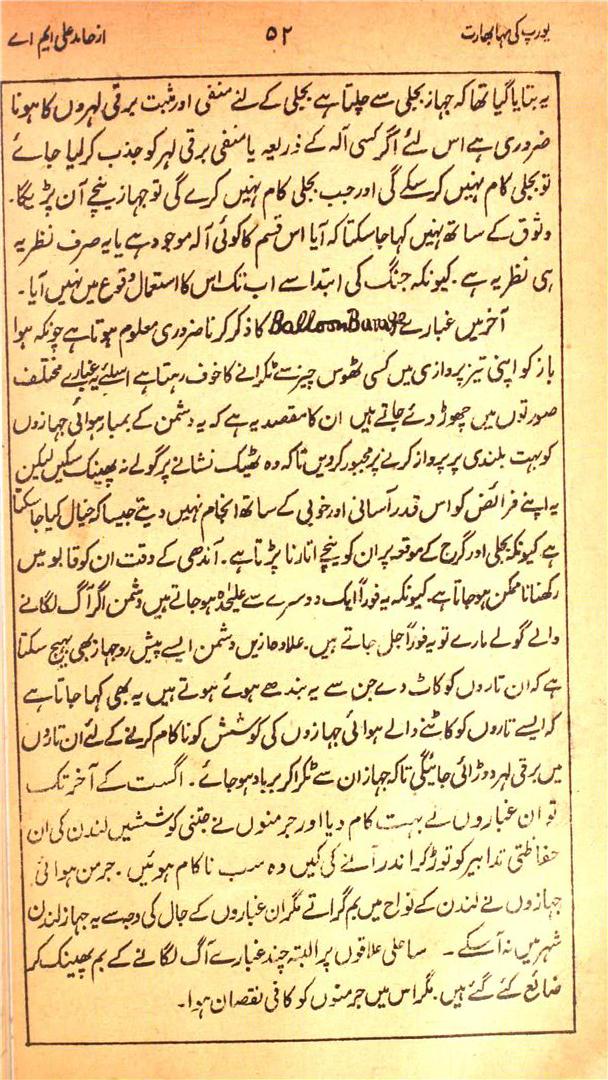 یورپ کی مہابھارت ۵۲ از حامد علی ایم اے
یہ بتایا گیا تھا کہ جہاز بجلی سے چلتا ہے بجلی کے لئے منفی اور مثبت برقی لہروں کا ہونا
ضروری ہے اس لئے اگر کسی آلہ کے ذریعہ یا منفی برقی لہر کو جذب کر لیا جائے
تو بجلی کام نہیں کر سکے گی اور جب بجلی کام نہیں کرے گی تو جہاز نیچے آن پڑیگا۔
وثوق کے ساتھ نہیں کہا جا سکتا کہ آیا اس قسم کا کوئی آلہ موجود ہے یا یہ صرف نظریہ
ہی نظریہ ہے۔ کیونکہ جنگ کی ابتدا سے اب تک اس کا استعمال وقوع میں نہیں آیا۔
آخر میں غبارے Balloon Barrage کا ذکر کرنا ضروری معلوم ہوتا ہے چونکہ ہوا
باز کو اپنی تیز پروازی میں کسی ٹھوس چیز سے ٹکرانے کا خوف رہتا ہے اسلئے یہ غبارے مختلف
صورتوں میں چھوڑ دئے جاتے ہیں ان کا مقصد یہ ہے کہ یہ دشمن کے بمبار ہوائی جہازوں
کو بہت بلندی پر پرواز کرنے پر مجبور کر دیں تاکہ وہ ٹھیک نشانے پر گولے نہ پھینک سکیں لیکن
یہ اپنے فرائض کو اس قدر آسانی اور خوبی کے ساتھ انجام نہیں دیتے جیسا کہ خیال کیا جا سکتا
ہے کیونکہ بجلی اور گرج کے موقعہ پر ان کو نیچے اتارنا پڑتا ہے۔ آندھی کے وقت ان کو قابو میں
رکھنا ناممکن ہو جاتا ہے کیونکہ یہ فوراً ایک دوسرے سے علیحدہ ہو جاتے ہیں دشمن اگر آگ لگانے
والے گولے مارے تو یہ فوراً جل جاتے ہیں۔ علاوہ ازیں دشمن ایسے پیش رو جہاز بھی بھیج سکتا
ہے کہ ان تاروں کو کاٹ دے جن سے یہ بندھے ہوئے ہوتے ہیں یہ بھی کہا جاتا ہے
کہ ایسے تاروں کو کاٹنے والے ہوائی جہازوں کی کوشش کو ناکام کرنے کے لئے ان تاروں
میں برقی لہر دوڑائی جائیگی تاکہ جہاز ان سے ٹکرا کر برباد ہو جائے۔ اگست کے آخر تک
تو ان غباروں نے بہت کام دیا اور جرمنوں نے جتنی کوششیں لندن کی ان
حفاظتی تدابیر کو توڑ کر اندر آنے کی کیں وہ سب ناکام ہوئیں۔ جرمن ہوائی
جہازوں نے لندن کے نواح میں بم گرائے مگر ان غباروں کے جال کی وجہ سے یہ جہاز لندن
شہر میں نہ آ سکے۔ ساحلی علاقوں پر البتہ چند غبارے آگ لگانے کے بم پھینک کر
ضائع کئے گئے ہیں۔ مگر اس میں جرمنوں کو کافی نقصان ہوا۔